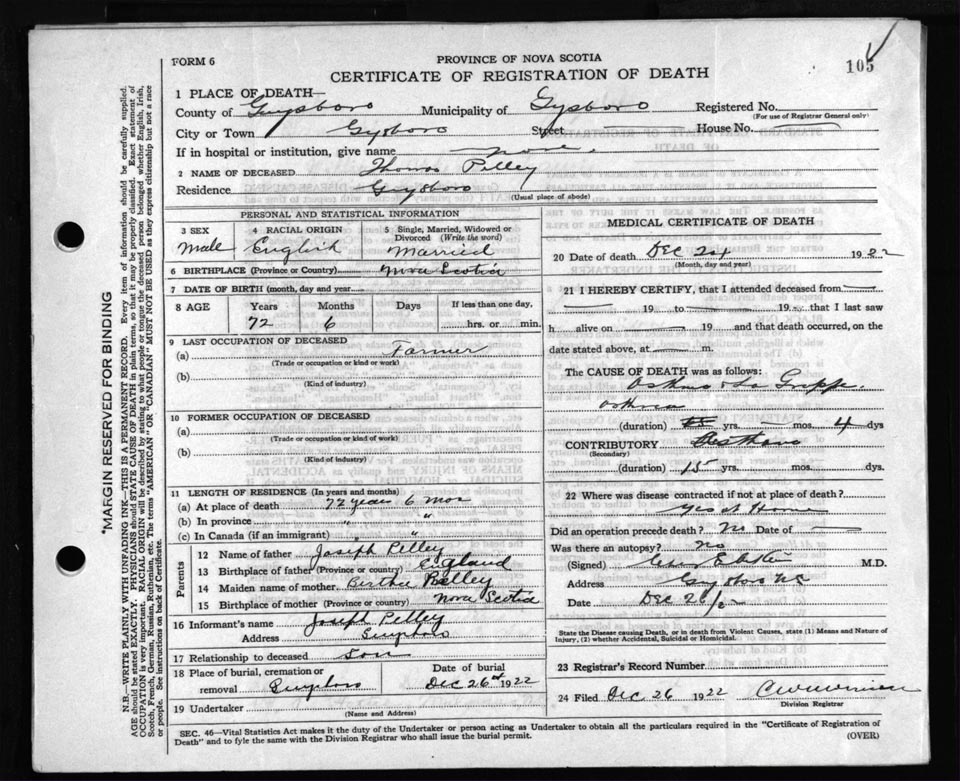 FORM 6
PROVINCE OF NOVA SCOTIA
CERTIFICATE OF REGISTRATION OF DEATH
105
1 PLACE OF DEATH—
County of Guysboro Municipality of Gysboro Registered No.
(For use of Registrar General only)
City or Town Gysboro Street House No.
If in hospital or institution, give name none.
2 NAME OF DECEASED Thomas Pelley
Residence Guysboro
(Usual place of abode)
PERSONAL AND STATISTICAL INFORMATION
3 SEX 4 RACIAL ORIGIN 5 Single, Married, Widowed or Divorced (Write the word)
Male English Married
6 BIRTHPLACE (Province or Country) Nova Scotia
7 DATE OF BIRTH (month, day and year)
8 AGE Years Months Days If less than one day,
72 6 hrs. or min.
9 LAST OCCUPATION OF DECEASED
(a) Farmer
(Trade or occupation or kind or work)
(b)
(Kind of industry)
10 FORMER OCCUPATION OF DECEASED
(a)
(Trade or occupation or kind of work)
(b)
(Kind of industry)
11 LENGTH OF RESIDENCE (In years and months)
(a) At place of death 72 years 6 mos
(b) In province " "
(c) In Canada (if an immigrant) " "
Parents
12 Name of father Joseph Pelley
13 Birthplace of father (Province or country) England
14 Maiden name of mother Bertha Pelley
15 Birthplace of mother (Province or country) Nova Scotia
16 Informant's name Joseph Pelley
Address Guysboro
17 Relationship to deceased Son
18 Place of burial, cremation or removal Guysboro Date of burial Dec 26th 1922
19 Undertaker
(Name and Address)
MEDICAL CERTIFICATE OF DEATH
20 Date of death Dec 24 1922
(Month, day and year)
21 I HEREBY CERTIFY, that I attended deceased from
19 to 19 that I last saw
h alive on 19 and that death occurred, on the
date stated above, at m.
The CAUSE OF DEATH was as follows:
La Grippe
(duration) yrs. mos. 4 dys
CONTRIBUTORY
(Secondary)
(duration) 15 yrs. mos. dys.
22 Where was disease contracted if not at place of death?
Home
Did an operation precede death? No Date of
Was there an autopsy? No
(Signed) M.D.
Address Guysboro NS
Date Dec 26/22
State the Disease causing Death, or in death from Violent Causes, state (1) Means and Nature of
Injury, (2) whether Accidental, Suicidal or Homicidal.
23 Registrar's Record Number
24 Filed Dec 26 1922
Division Registrar
SEC. 46—Vital Statistics Act makes it the duty of the Undertaker or person acting as Undertaker to obtain all the particulars required in the "Certificate of Registration of
Death" and to fyle the same with the Division Registrar who shall issue the burial permit.
(OVER)
*MARGIN RESERVED FOR BINDING
N.B.—WRITE PLAINLY WITH UNFADING INK—THIS IS A PERMANENT RECORD. Every item of information should be carefully supplied.
AGE should be stated EXACTLY. PHYSICIANS should STATE CAUSE OF DEATH in plain terms, so that it may be properly classified. Exact statement of
OCCUPATION is very important. RACIAL ORIGIN will be described by stating to what people or tongue the deceased person belonged whether English, Irish,
Scotch, French, German, Russian, Ruthenian, etc. The terms "AMERICAN" OR "CANADIAN" MUST NOT BE USED as they express citizenship but not a race
or people. See instructions on back of Certificate.